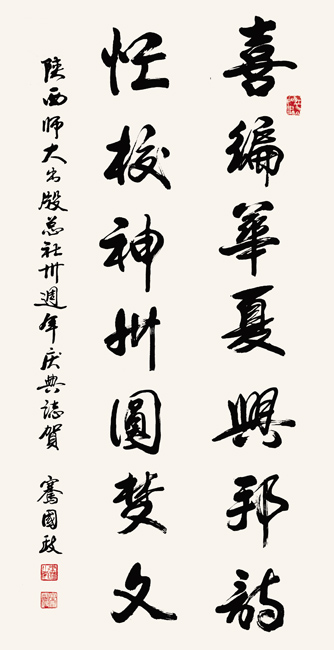 喜編華夏興邦韵
忙校神州圓梦文
陕西师大出版总社卅週年庆典誌贺 騫國政